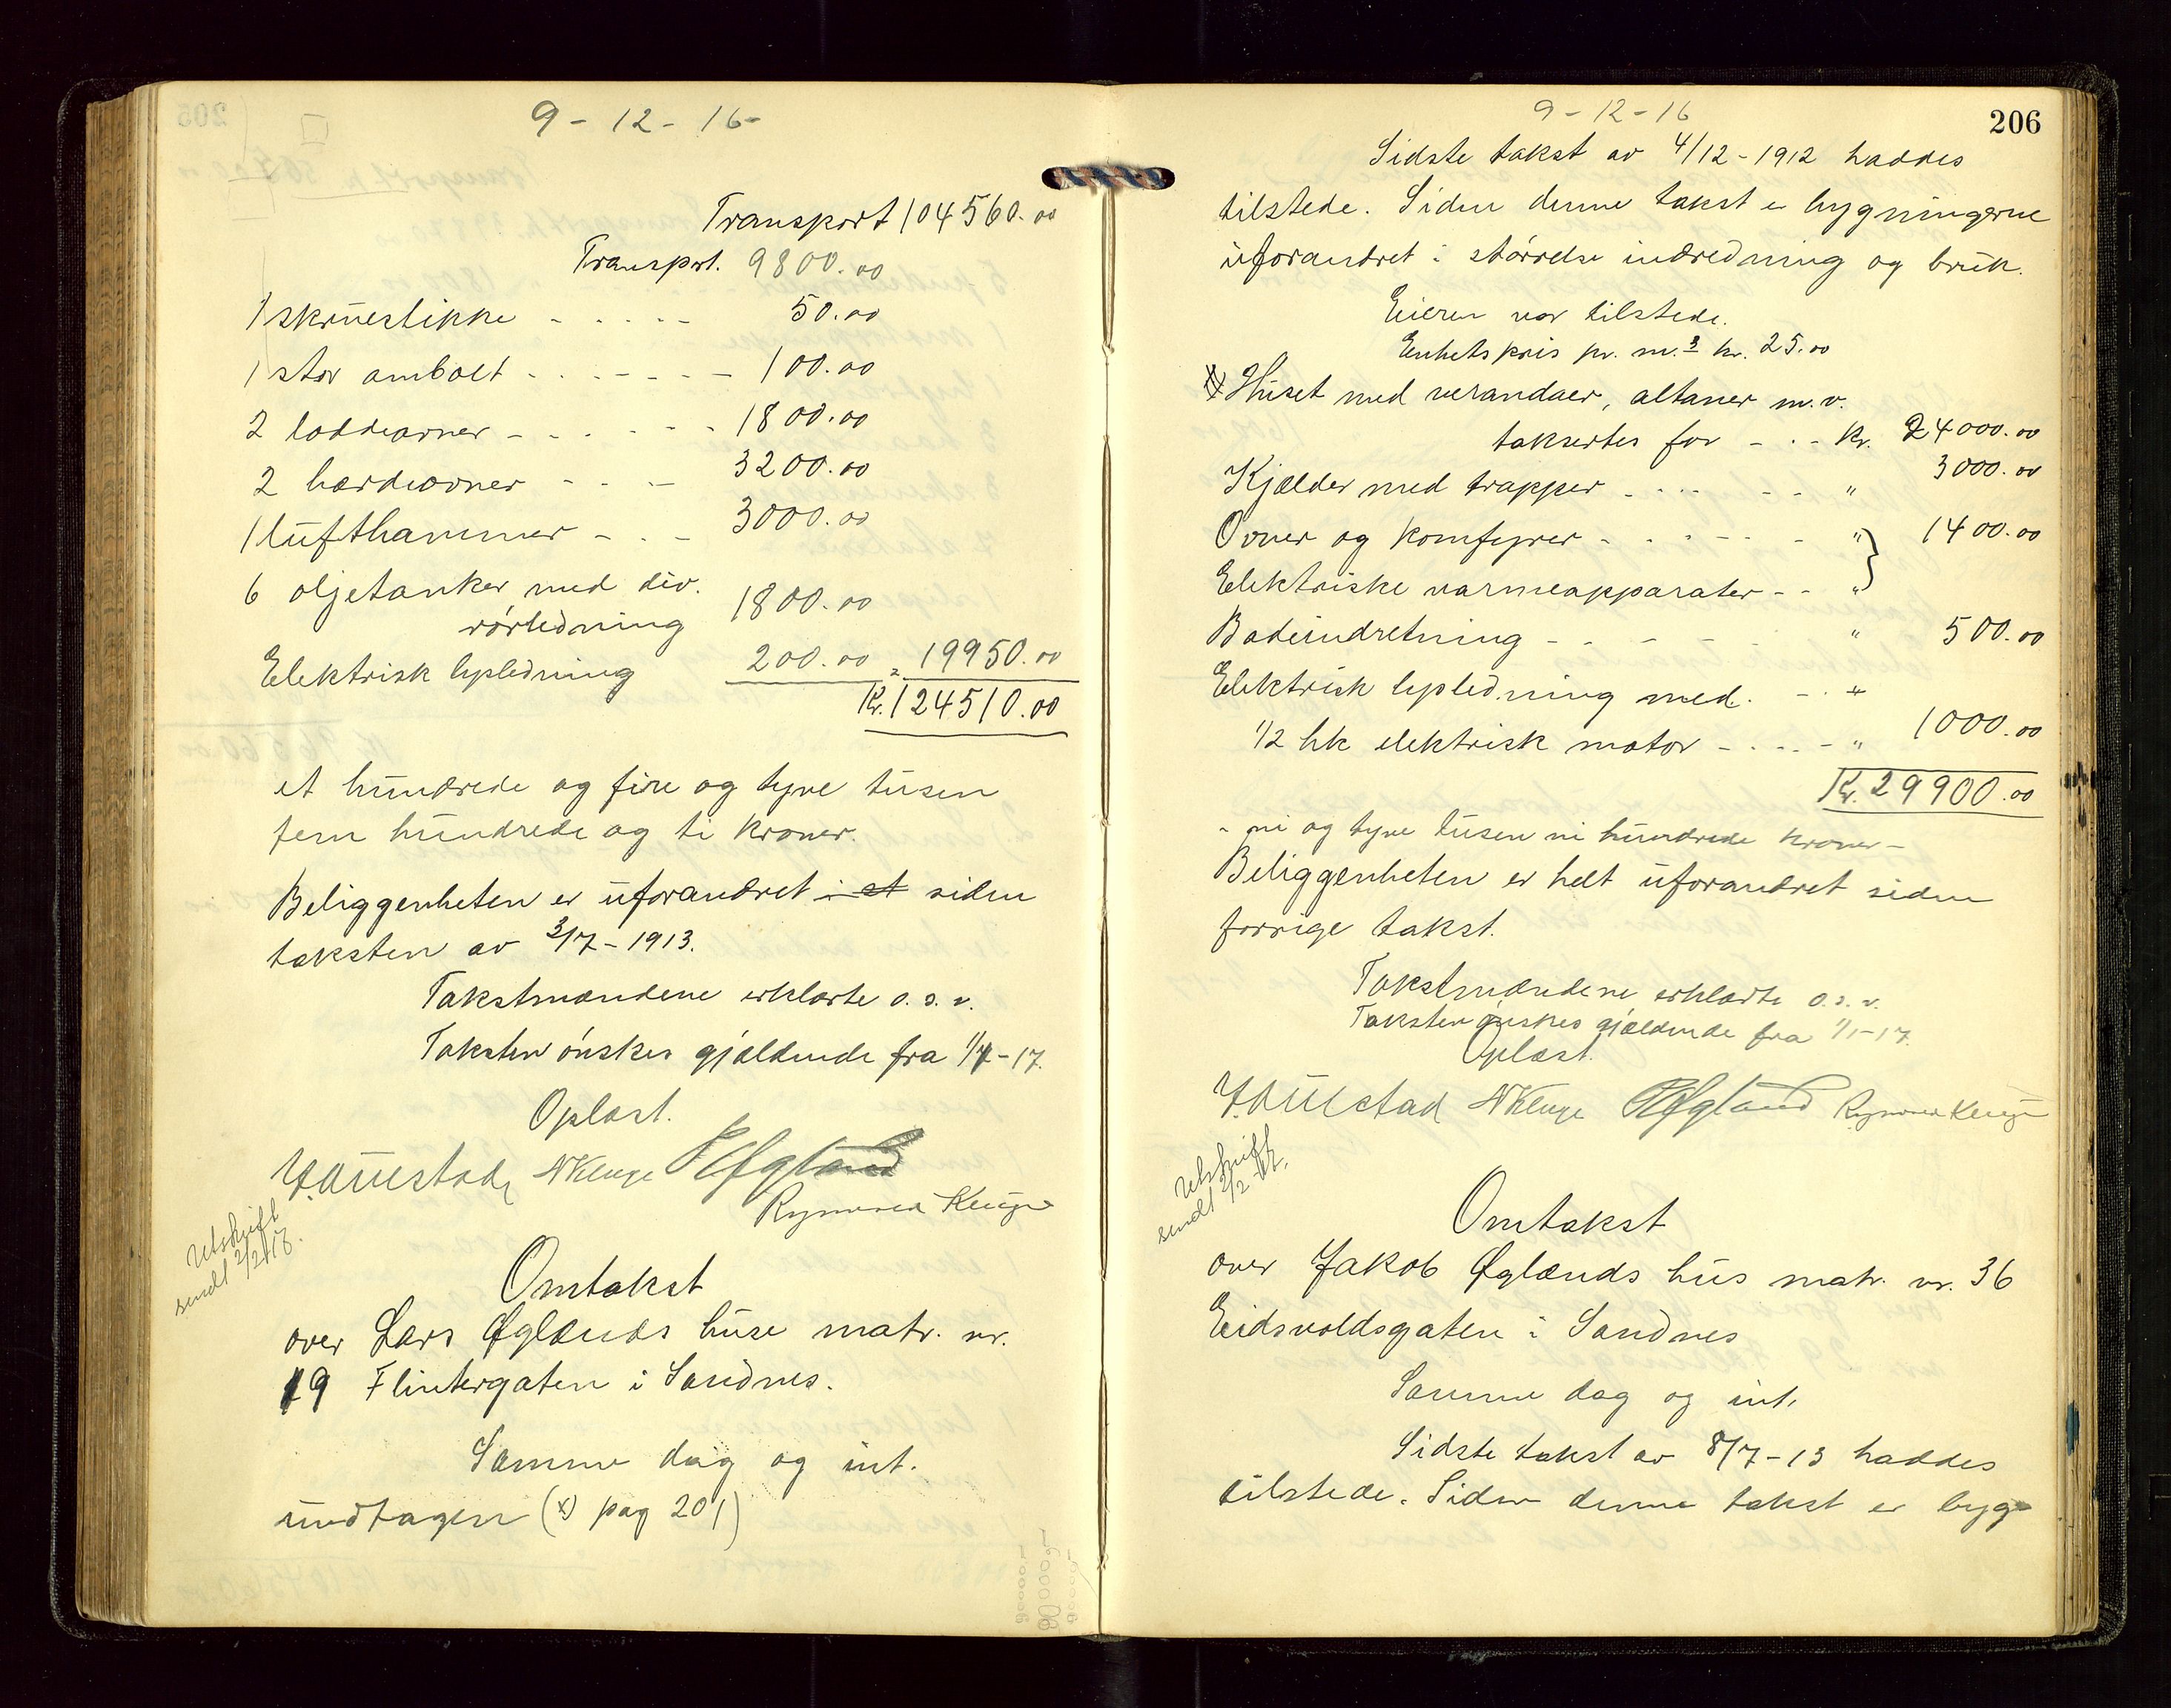 9 - 12 - 16 -
Transport 104560.00
Transport. 9800.00
1 skruestikke - - - - - 50.00
1 stor ambolt - - - - - - - 100.00
2 loddeovner - - - - - - 1800.00
2 hærdeovner - - - - 3200.00
1 lufthammer - - - 3000.00
6 oljetanker med div.
rørledning 1800.00
Elektrisk lysledning 200.00 = 19950.00
Kr. 124510.00
et hundrede og fire og tyve tusen
fem hundrede og ti kroner.
Beliggenheten er uforandret i et siden
taksten av 3/7 - 1913.
Takstmændene erklærte o.s.v.
Taksten ønskes gjældende fra 1/1-17.
Oplæst.
N Kluge
Utskrift
sendt 2/2 17.
Omtakst
over Lars Øglænds huse matr. nr.
19 Flintergaten i Sandnes.
Samme dag og int.
undtagen (x) pag 201)
9 - 12 - 16
206
Sidste takst av 4/12 - 1912 haddes
tilstede. Siden denne takst er bygningerne
uforandret i størrelse indredning og bruk.
Eieren var tilstede.
Enhetspris pr. m.² kr. 25.00
Huset med verandaer, altaner m.v.
taksertes for - - - kr. 24000.00
Kjælder med trapper - - - - - - " 3000.00
Ovner og komfyrer - - - - - - " } 1400.00
Elektriske varmeapparater - - "
Badeindretning - - - - - " 500.00
Elektrisk lysledning med. - - "
1/2 hk elektrisk motor - - - - - " 1000.00
Kr. 29900.00
- ni og tyve tusen ni hundrede kroner -
Beliggenheten er helt uforandret siden
forrige takst.
Takstmændene erklærte o.s.v.
Taksten ønskes gjældende fra 1/1-17.
Oplæst.
N Kluge
Utskrift
sendt 2/2-17.
Omtakst
over Jakob Øglænds hus matr. nr. 36
Eidsvoldsgaten i Sandnes
Samme dag og int.
Sidste takst av 8/7 - 13 haddes
tilstede. Siden denne takst er byg-